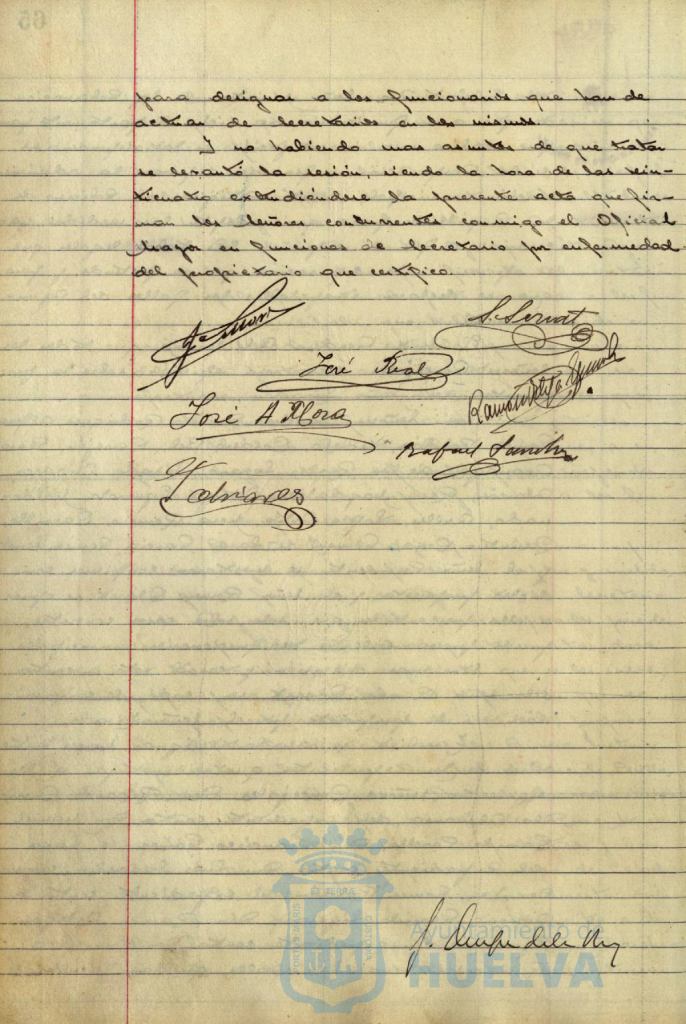 para designar a los funcionarios que han de
actuar de Secretarios en los mismos.
Y no habiendo mas asuntos de que tratar
se levantó la sesión, siendo la hora de las vein-
ticuatro extendiéndose la presente acta que fir-
man los Señores concurrentes conmigo el Oficial
Mayor en funciones de Secretario por enfermedad
del propietario que certifico.
S. Servat
José Real
José A Mora
Ramón
Rafael Sanchez
Ayuntamiento de
HUELVA